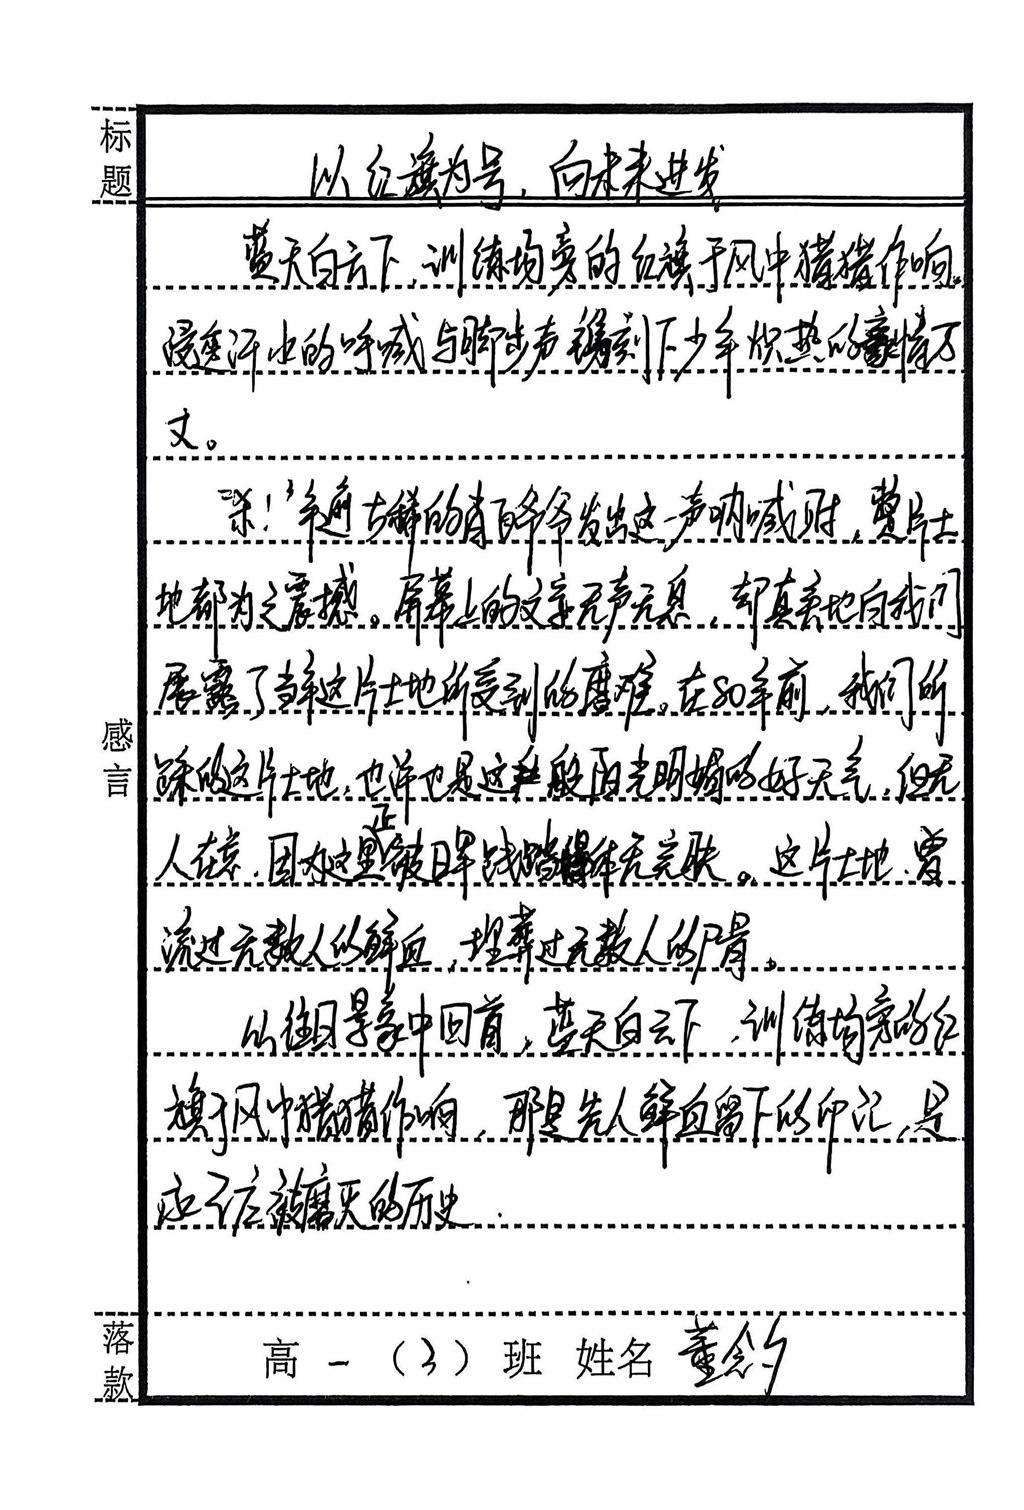 标题
以红旗为号，向未来进发
蓝天白云下，训练场旁的红旗于风中猎猎作响。
浸透汗水的呼喊与脚步声镌刻下少年炽热的豪情万
丈。
“杀！”年逾古稀的肖百爷爷发出这一声呐喊时，整片土
地都为之震撼。屏幕上的文章无声无息，却真实地向我们
展露了当年这片土地所受到的磨难。在80年前，我们所
踩的这片土地，也许也是这般阳光明媚的好天气，但无
人在意，因为这里正被日军践踏得体无完肤。这片土地，曾
流过无数人的鲜血，埋葬过无数人的尸骨。
感言
从往日景象中回首，蓝天白云下，训练场旁的红
旗于风中猎猎作响，那是先人鲜血留下的印记，是
永不应被磨灭的历史.
落款
高一（3）班 姓名 董念夕